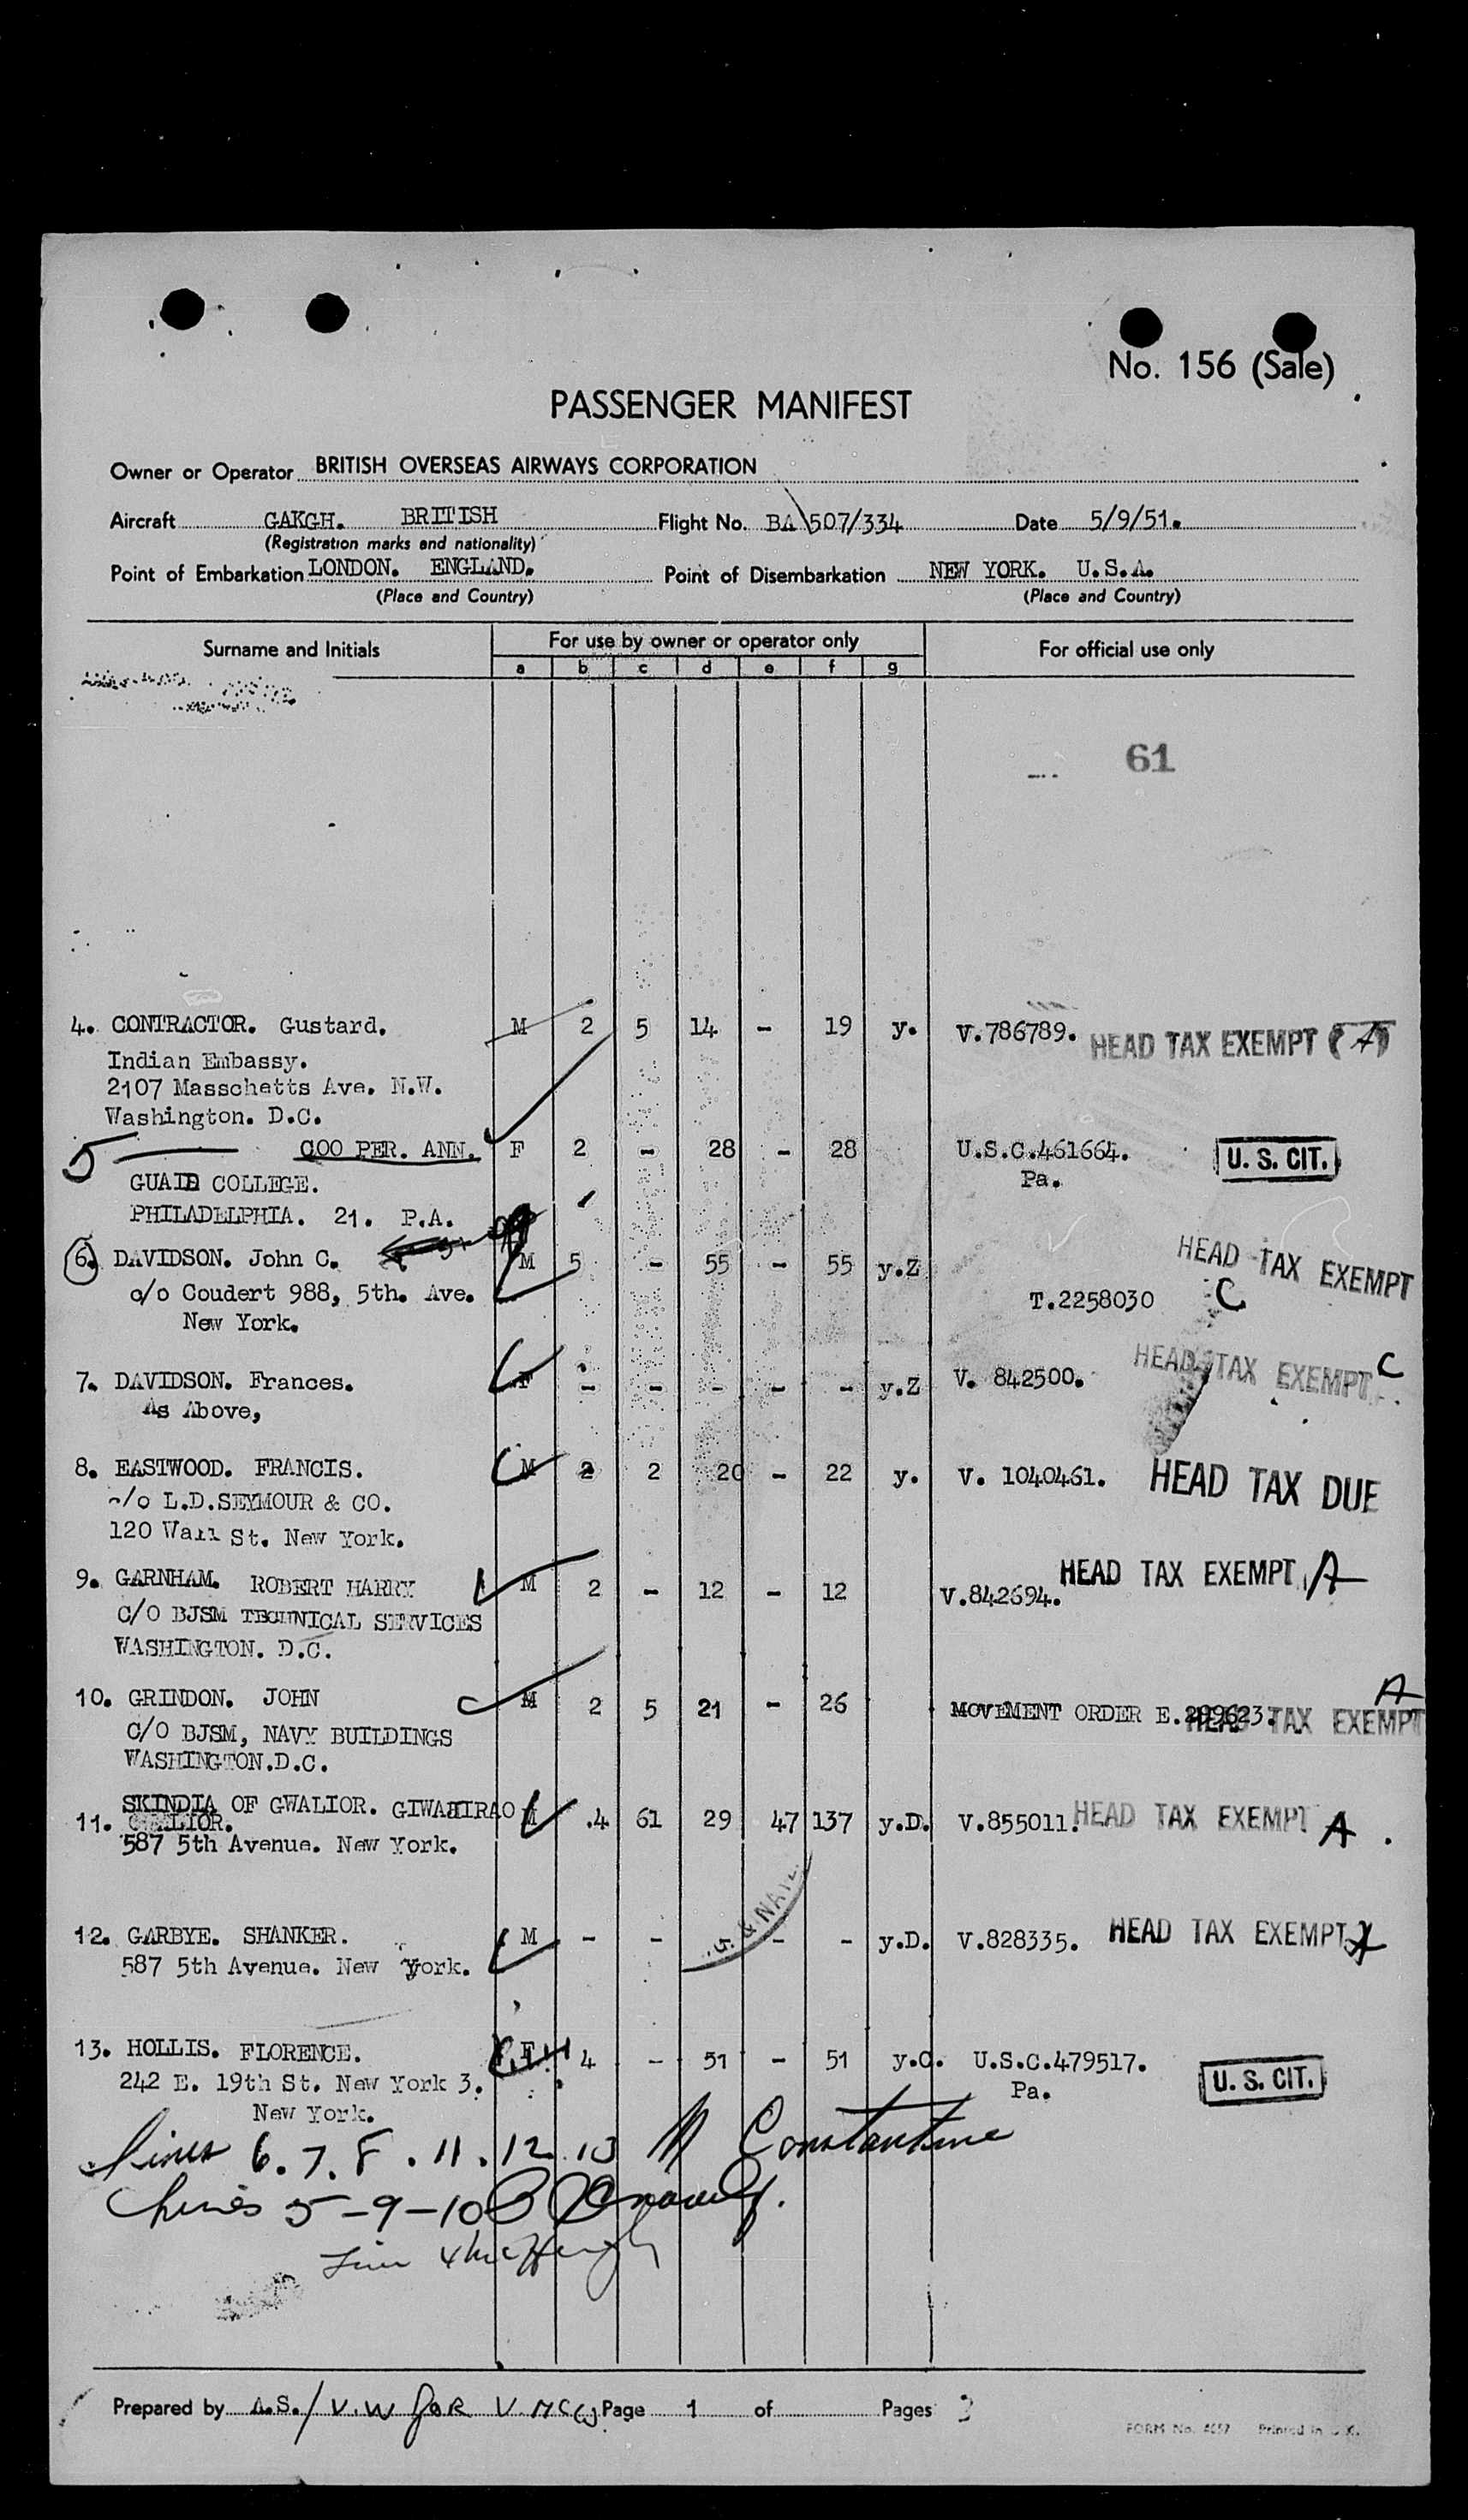 No. 156 (Sale)
PASSENGER MANIFEST
Owner or Operator BRITISH OVERSEAS AIRWAYS CORPORATION
Aircraft GAKGH. BRITISH Flight No. BA\507/334 Date 5/9/51.
(Registration marks and nationality)
Point of Embarkation LONDON. ENGLAND. Point of Disembarkation NEW YORK. U.S.A.
(Place and Country) (Place and Country)
Surname and Initials For use by owner or operator only For official use only
a b c d e f g
61
4. CONTRACTOR. Gustard. M 2 5 14 - 19 y. V.786789. HEAD TAX EXEMPT (A)
Indian Embassy.
2107 Masschetts Ave. N.W.
Washington. D.C.
5 COO PER. ANN. F 2 - 28 - 28 U.S.C.461664. U. S. CIT.
Pa.
GUAID COLLEGE.
PHILADELPHIA. 21. P.A.
6. DAVIDSON. John C. M 5 - 55 - 55 y.Z HEAD TAX EXEMPT
c/o Coudert 988, 5th. Ave. T.2258030 C
New York.
7. DAVIDSON. Frances. F - - - - - y.Z V. 842500. HEAD TAX EXEMPT C
As Above,
8. EASTWOOD. FRANCIS. M 2 2 20 - 22 y. V. 1040461. HEAD TAX DUE
c/o L.D.SEYMOUR & CO.
120 Wall St. New York.
9. GARNHAM. ROBERT HARRY M 2 - 12 - 12 V.842694. HEAD TAX EXEMPT A
C/O BJSM TECHNICAL SERVICES
WASHINGTON. D.C.
10. GRINDON. JOHN M 2 5 21 - 26 MOVEMENT ORDER E.299623. HEAD TAX EXEMPT A
C/O BJSM, NAVY BUILDINGS
WASHINGTON.D.C.
SKINDIA OF GWALIOR. GIWAJIRAO
11. GWALIOR. M .4 61 29 47 137 y.D. V.855011. HEAD TAX EXEMPT A
587 5th Avenue. New York.
12. GARBYE. SHANKER. M - - - - y.D. V.828335. HEAD TAX EXEMPT A
587 5th Avenue. New York.
. & NAT
13. HOLLIS. FLORENCE. F 4 - 51 - 51 y.C. U.S.C.479517. U. S. CIT.
242 E. 19th St. New York 3. Pa.
New York.
Lines 6. 7. 8. 11. 12. 13 M Constantine
Lines 5-9-10
Line 4
Prepared by A.S./V.W for V. McW Page 1 of Pages 3
FORM No. Printed in U.K.